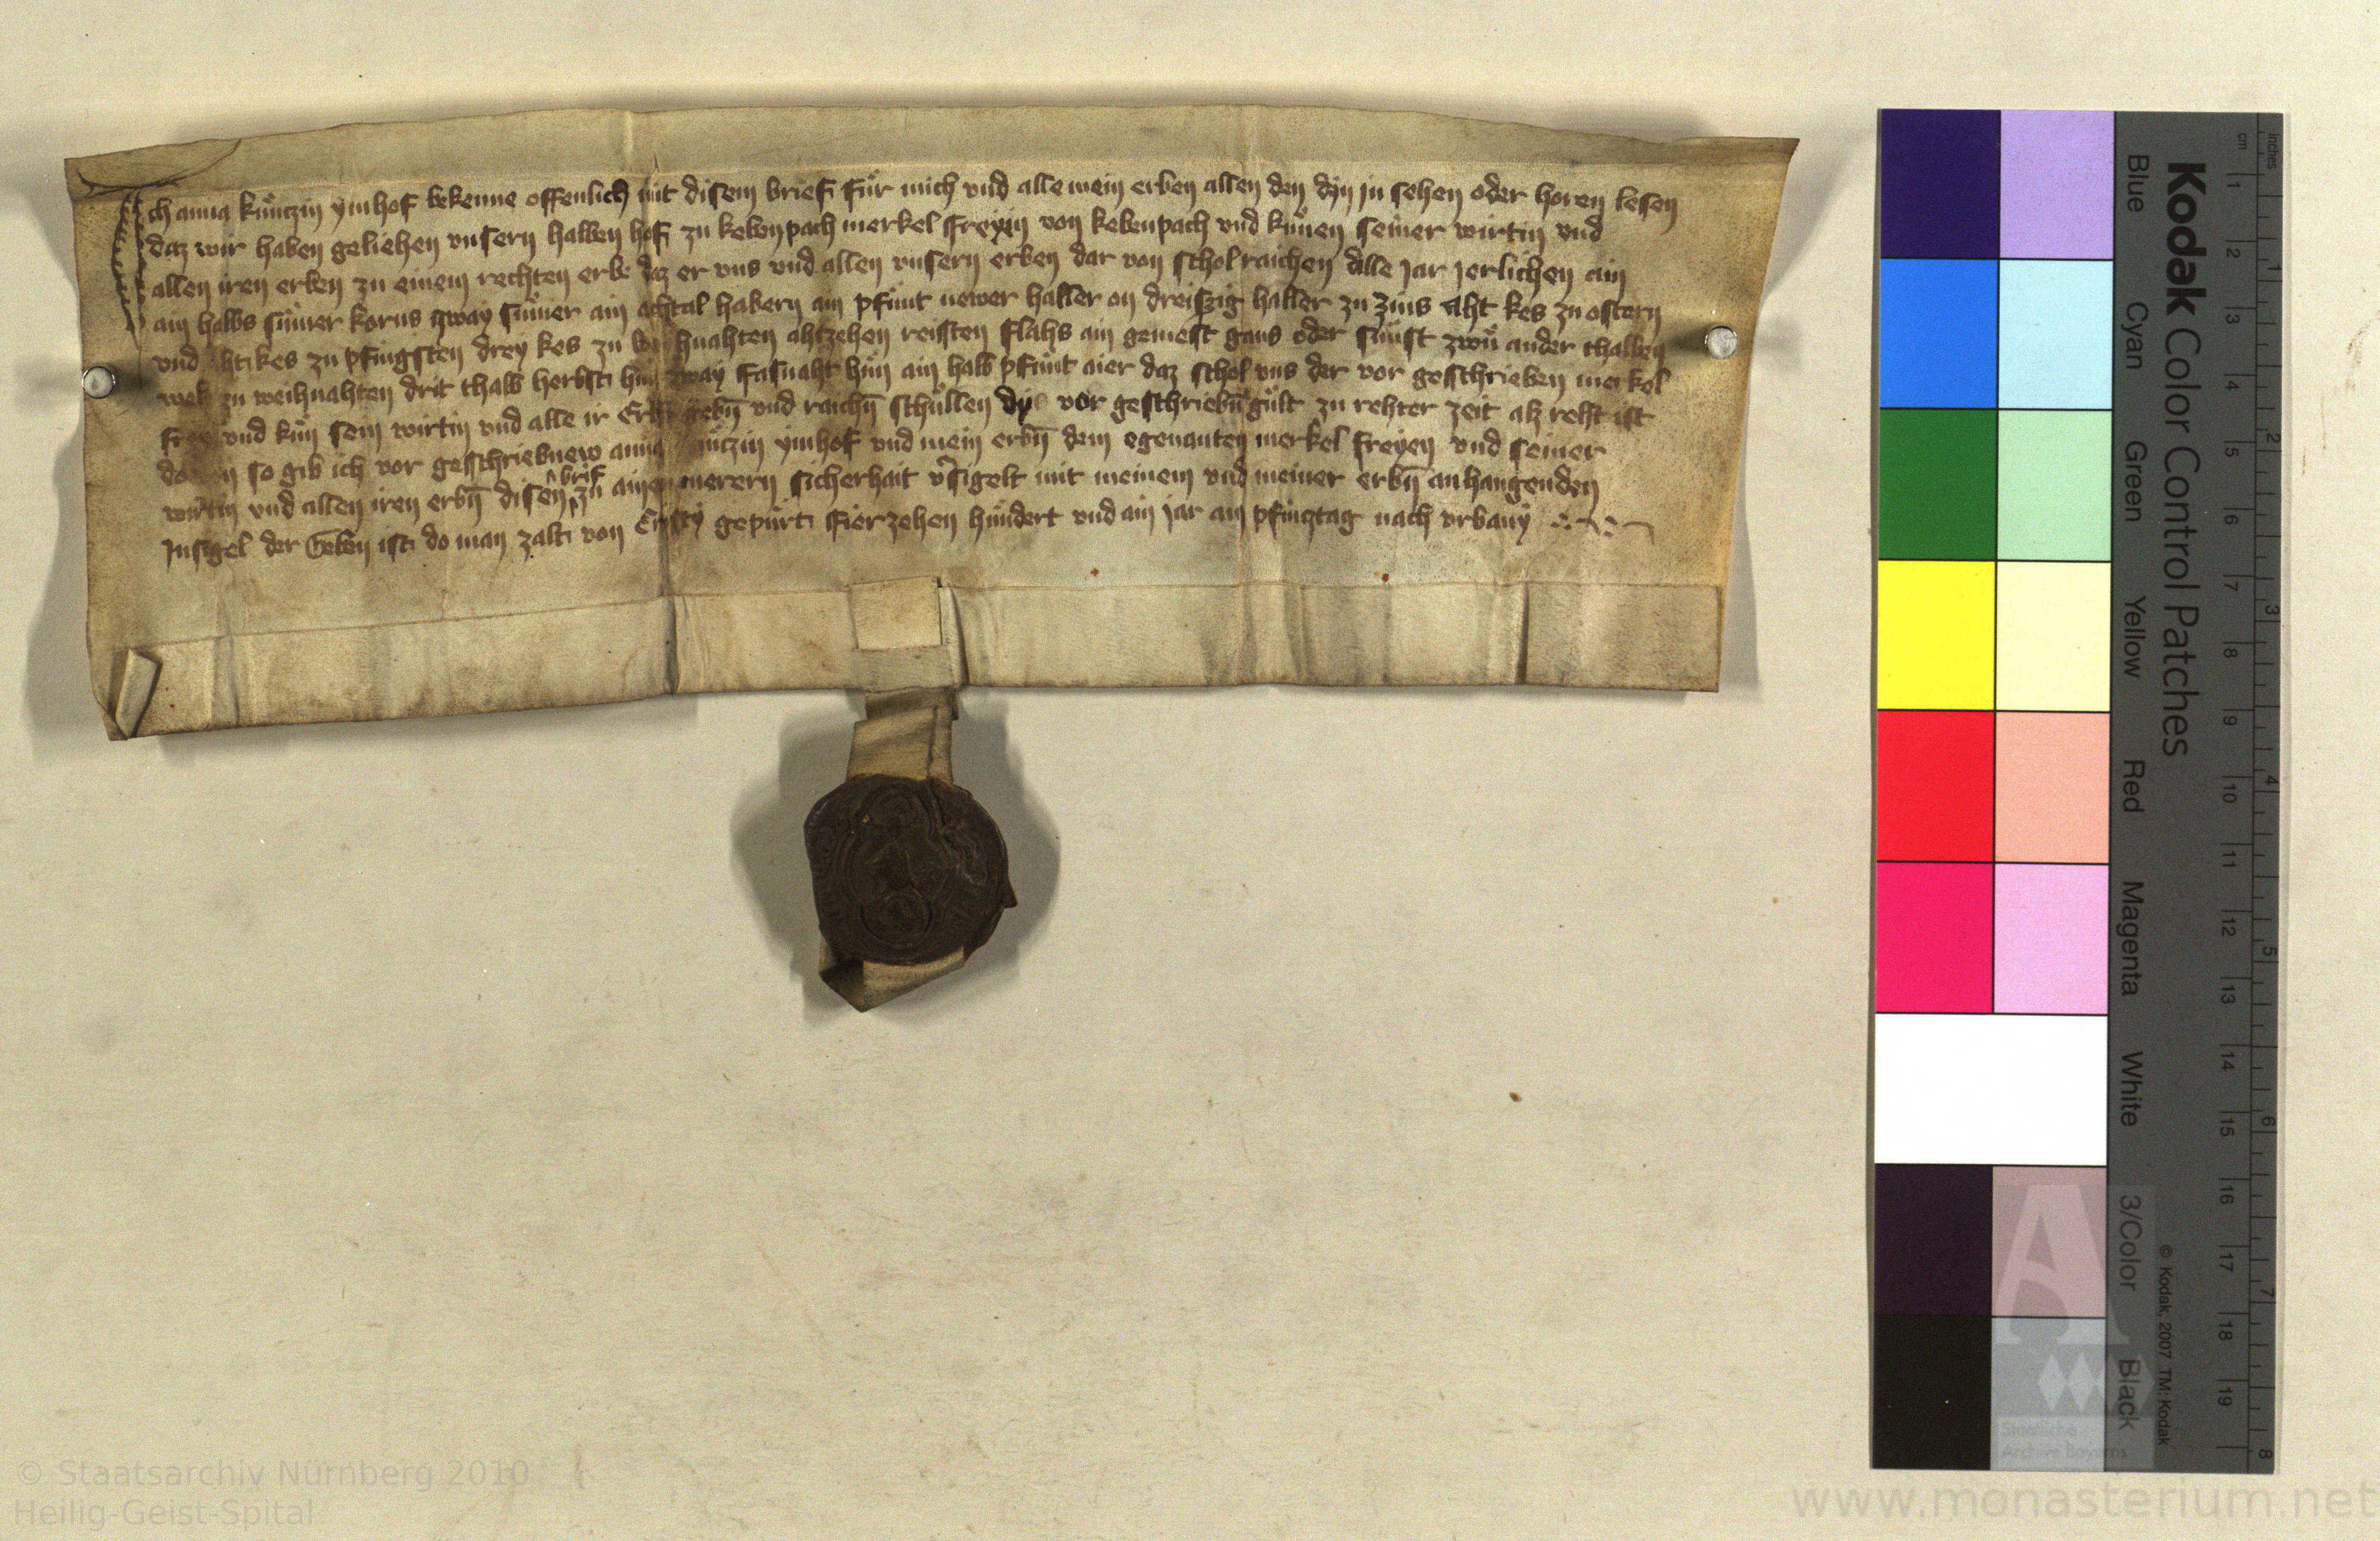 Ich anna kuͤnczin ymhof bekenne offenlich mit disem brief fuͤr mich vnd alle mein erben allen den dÿ in sehen oder horen lesen
daz wir haben geliehen vnsern halben hof zu kebenpach merkel freyin von kebenpach vnd kuͤnen seiner wirtin vnd
allen iren erben zu einem rechten erbe daz er vns vnd allen vnsern erben dar von schol raichen alle jar jerlichen ain
ain halbs suͤmer korns zway suͤmer ain achtal habern ain pfuͤnt newer haller on dreiszig haller zu zins aht kes zu ostern
vnd aht kes zu pfingsten drey kes zu weihnahten ahtzehen reisten flahs ain gemest gans oder suͤnst zwuͤ ander thalben
wek zu weihnahten drit thalb herbst huͤn zway fasnaht huͤn ain halb pfuͤnt aier daz schol vns der vor geschrieben merkel
frey vnd kuͤn sein wirtin vnd alle ir Erbn̄ gebn̄ vnd raichn̄ schuͤllen dy vor geschriebn̄ guͤlt zu rehter zeit alz reht ist
do von so gib ich vor geschriebnew anna kuͤnczin ymhof vnd mein erbn̄ dem egenanten merkel freyen vnd seiner
wirtin vnd allen iren erbn̄ disen brif zu ainer merern sicherhait v̄sigelt mit meinem vnd meiner erbn̄ anhangenden
Jnsigel der Geben ist do man zalt von Cristi gepuͤrt fierzehen huͤndert vnd ain jar am pfincztag nach vrbany
Kodak Color Control Patches
Blue Cyan Green Yellow Red Magenta White 3/Color Black
© Kodak, 2007 TM: Kodak
inches 1 2 3 4 5 6 7 8
cm 1 2 3 4 5 6 7 8 9 10 11 12 13 14 15 16 17 18 19
Staatliche
Archive Bayerns
© Staatsarchiv Nürnberg 2010
Heilig-Geist-Spital
www.monasterium.net